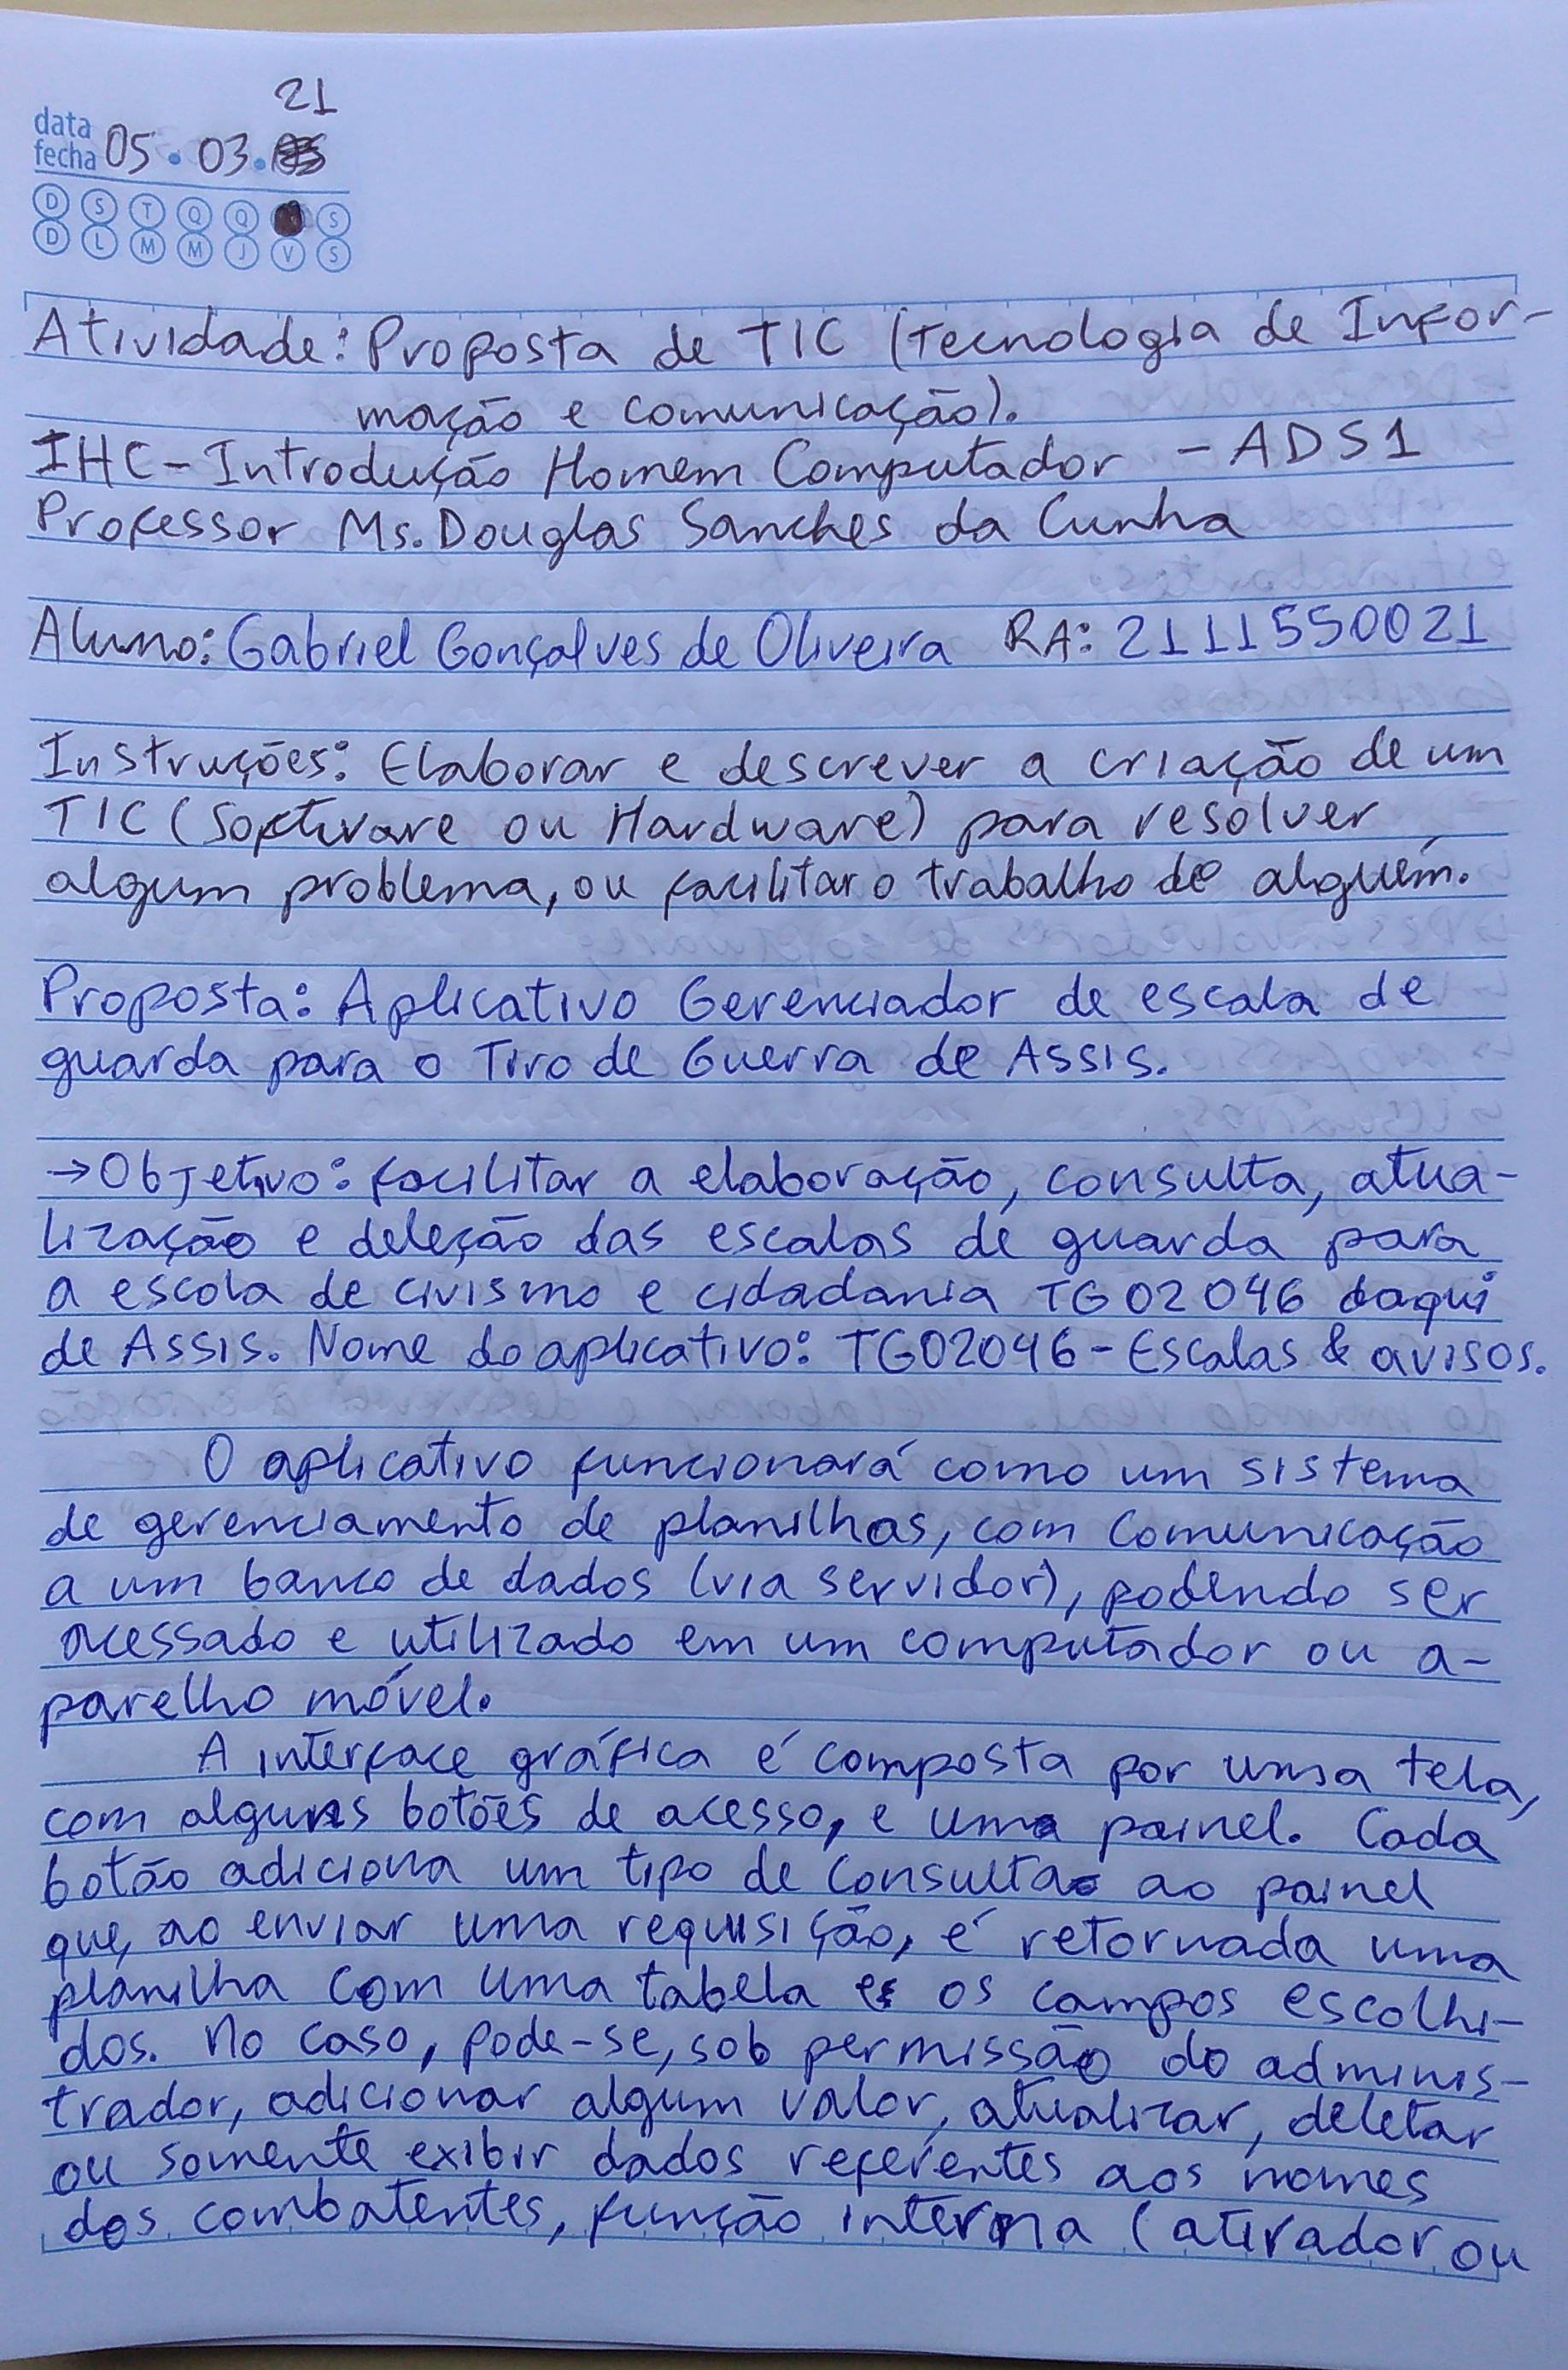 21
data
fecha 05 . 03 .
D S T Q Q S
D L M M J V S
Atividade: Proposta de TIC (Tecnologia de Infor-
mação e comunicação).
IHC - Introdução Homem Computador - ADS1
Professor Ms. Douglas Sanches da Cunha
Aluno: Gabriel Gonçalves de Oliveira RA: 2111550021
Instruções: Elaborar e descrever a criação de um
TIC (Software ou Hardware) para resolver
algum problema, ou facilitar o trabalho de alguém.
Proposta: Aplicativo Gerenciador de escala de
guarda para o Tiro de Guerra de Assis.
→ Objetivo: facilitar a elaboração, consulta, atua-
lização e deleção das escalas de guarda para
a escola de civismo e cidadania TG02046 daqui
de Assis. Nome do aplicativo: TG02046 - Escalas & avisos.
O aplicativo funcionará como um sistema
de gerenciamento de planilhas, com comunicação
a um banco de dados (via servidor), podendo ser
acessado e utilizado em um computador ou a-
parelho móvel.
A interface gráfica é composta por uma tela,
com alguns botões de acesso, e uma painel. Cada
botão adiciona um tipo de consulta ao painel
que, ao enviar uma requisição, é retornada uma
planilha com uma tabela e os campos escolhi-
dos. No caso, pode-se, sob permissão do adminis-
trador, adicionar algum valor, atualizar, deletar
ou somente exibir dados referentes aos nomes
dos combatentes, função interna (atirador ou